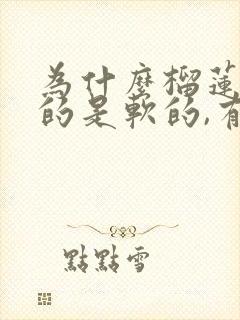 為什麼榴蓮
的是軟的,有
點點雪